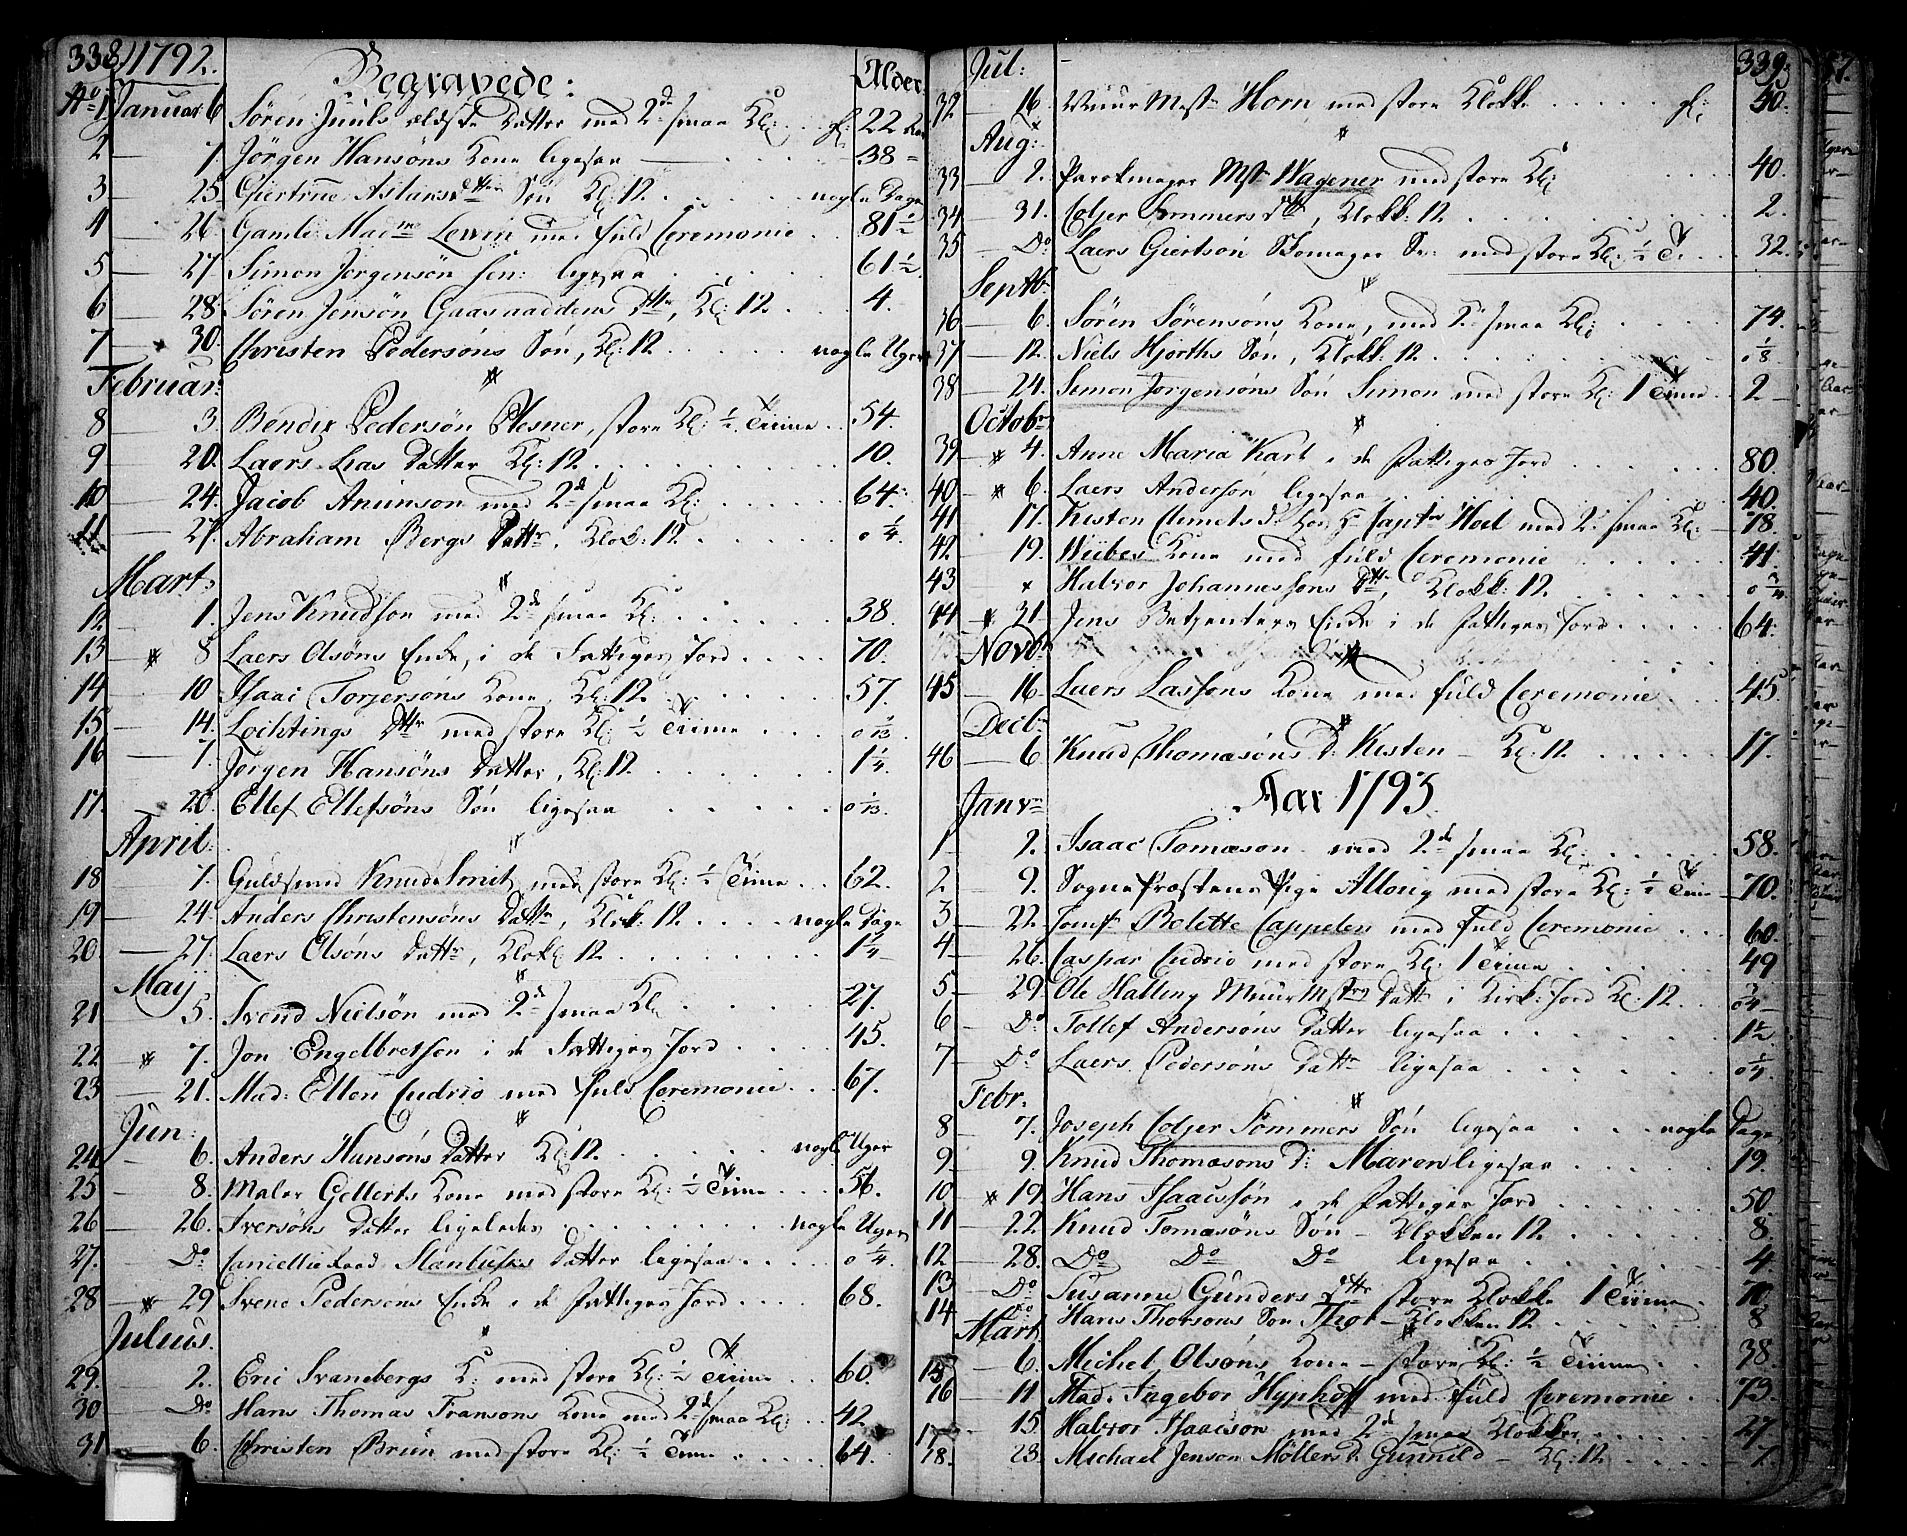 338. 1792. Begravede: Alder.
No 1 Januar 6 Søren Juuls ældste Datter med 2de smaa Kl: 22 Aar
2 — 7. Jørgen Hansøns Kone ligesaa 38
3 — 25. Giertrue Aslaksd Søn Kl: 12. nogle Dage
4 — 26. Gamle Madme Lewin med fuld Ceremonie 81 1/2
5 — 27. Simon Jørgensøn sen: ligesaa 61 1/2
6 — 28. Søren Jensøn Gaasaaddens Dttr, Kl: 12. 4.
7 — 30. Christen Pedersøns Søn, Kl: 12. nogle Uger
Februar:
8 — 3. Bendix Pedersøn Plesner, store Kl: 1/2 Tiime 54.
9 — 20. Laers Lias Datter Kl: 12. 10.
10 — 24. Jacob Amunson med 2de smaa Kl: 64.
11 — 27. Abraham Bergs Dattr, Klok: 12. 0 1/4.
Mart:
12 — 1. Jens Knudson med 2de smaa Kl: 38.
13 — 8 Laers Olsøns Enke, i de Fattiges Jord 70.
14 — 10 Isaac Torjersøns Kone, Kl: 12 57.
15 — 14. Lochtings Dttr med store Kl: 1/2 Tiime
16 — 7. Jørgen Hansøns Datter, Kl: 12. 1 1/4.
17. — 20. Ellef Ellefsøns Søn ligesaa
April:
18 — 7. Guldsmed Knud Smit, med store Kl: 1/2 Time 62.
19 — 24. Anders Christensøns Dattr, Klok: 12. nogle Dage
20. — 27. Laers Olsøns Dattr, Klok: 12 1 1/4
Maij
21 — 5. Svend Nielsøn med 2de smaa Kl: 27.
22 — 7. Jon Engelbretson i de Fattiges Jord 45.
23 — 21. Mad: Ellen Cudrio med fuld Ceremonie 67.
Jun:
24 — 6. Anders Hansøns Datter Kl: 12. nogle Uger
25 — 8. Maler Gellerts Kone med store Kl: 1/2 Time 56.
26 — 26. Iversøns Datter ligeledes nogle Uger
27. — Do Cancellie Raad Datter ligesaa 0 1/4.
28 — 29 Svend Pedersøns Enke i de Fattiges Jord 68.
Julius.
29. — 2. Eric Svanebergs K: med store Kl: 1/2 Tiime 60.
30 — Do Hans Thomas Fransøns Kone med 2de smaa Kl: 42
31 — 6. Christen Brun med store Kl: 1/2 Time 64.
Jul: 339.
32 — 16. Muur Mestr Horn med store Klokke 40.
Aug:
33 — 2. Parokmager Mstr Wagener med store Kl: 40.
34 — 31. Coljer Sommers Dttr, Klokk: 12 2.
35 — Do Laers Giertson Skomager Sv: med store Kl: 1/2 T. 32.
Septb:
36 — 6. Søren Sørensøns Kone, med 2de smaa Kl: 74.
37 — 12. Niels Hjorths Søn, Klokk: 12. 0 1/8
38 — 24. Semon Jørgensøns Søn Simon med store Kl: 1 Time 2
Octobr
39 — 4. Anne Maria Karl i de Fattiges Jord 80.
40 — 6. Laers Anderson ligesaa 40.
41 17. Kisten hos Hr Captn Hoel med 2de smaa Kl: 78.
42 19. Wiibes Kone med fuld Ceremonie 41.
43 Halvor Johannessons Dttr, Klokk: 12
44 31 Jens Betzenters Enke i de Fattiges Jord 64.
Novb:
45 — 16. Laers Lassons Kone med fuld Ceremonie 45.
Decb:
46 — 6 Knud Thomasøns D: Kisten — Kl: 12 17.
Janv: Aar 1793.
1 2. Isaac Tomason med 2de smaa Kl: 58.
2. 9. Sogne Præstens Pige med store Kl: 1/2 Time 70.
3 — 22. Jomfr Bolette Cappelen med fuld Ceremonie 60.
4 — 26. Caspar Cudrio med store Kl: 1 Time 49
5 — 29. Ole Halling Muur Mstrs Dattr i Kirk: Jord Kl: 12
6 — Do Tollef Andersøns Datter ligesaa 1 1/2
7 — Do Laers Pedersøns Dattr ligesaa 0 1/4.
Febr:
8 — 7. Joseph Coljer Sømmers Søn ligesaa nogle Dage
9 — 9. Knud Thomasøns D: Maren ligesaa 19.
10 19. Hans Isaacssøn i de Fattiges Jord 50.
11 — 22. Knud Tomasøns Søn — Klokken 12 8
12 — 28. Do Do Do ligesaa 4
13 Do Susanne Gunders Dttr store Klokke 1 Tiime 70.
14 Do Hans Thorsøns Søn Thor — Klokken 12 8
Mart
15 — 6. Michel Olsøns Kone — store Kl: 1/2 Tiime 38.
16 — 11. Mad: Ingebor Hyphoff med fuld Ceremonie 73.
17 15. Halvor Isaacson med 2de smaa Klokker 27
18. 23. Michael Jenson Møllers D: Gunnild — Kl: 12 7.